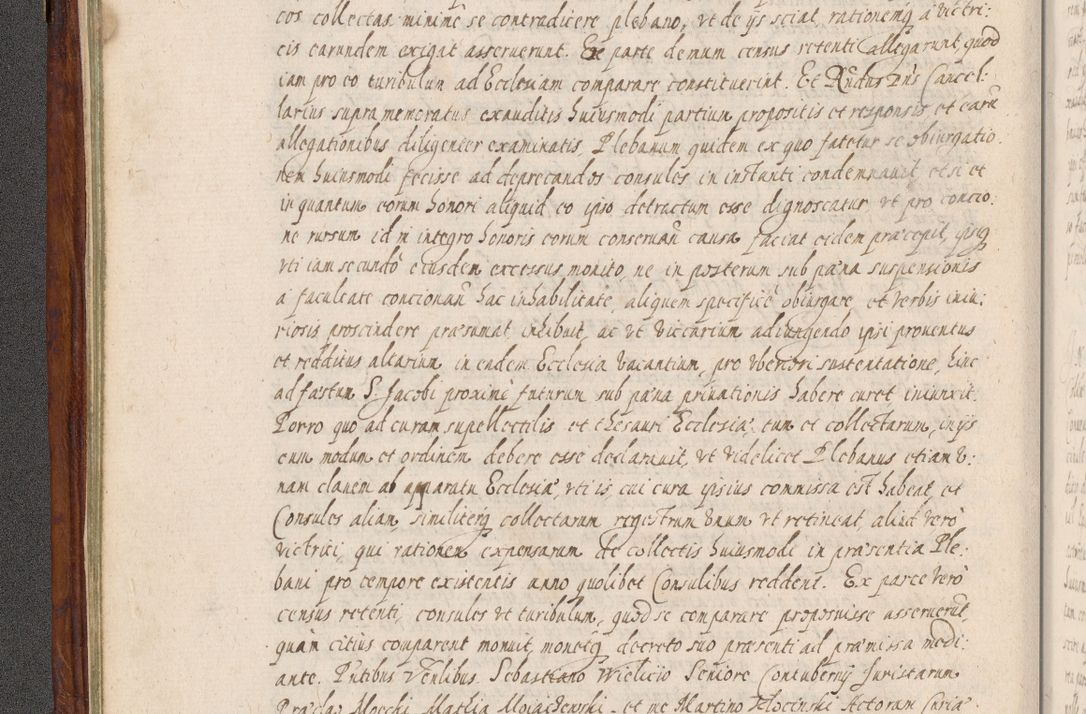 cos collectas minimè se contradicere plebano, vt de ijs sciat, rationemq̃ à victri:
cis earundem exigat asseruerunt. Ex parte demum census retenti allegarunt, quod
iam pro eo turibulum ad Ecclesiam comparare constituerint. Et Rñdus Dñs Cancel:
larius supra memoratus exauditis huiusmodi partium propositis et responsis, et earũ
allegationibus diligenter examinatis, Plebanum quidem ex quo fatetur se obiurgatio:
nem huiusmodi fecisse ad deprecandos consules in instanti condemnauit, etsi et
in quantum eorum honori aliquid eo ipso detractum esse dignoscatur vt pro concio:
ne rursum id in integro honoris eorum conseruañ causa faciat eidem præcepit, ipsuq̃
vti iam secundo eiusdem excessus monito, ne in posterum sub pæna suspensionis
à facultate concionañ hac inhabilitate, aliquem specificè obiurgare et verbis iniu:
riosis proscindere præsumat, inhibuit, ac vt vicarium adiungendo ipsi prouentus
et redditus altarium in eadem Ecclesia vacantium, pro vberiori sustentatione, hinc
ad fastum S. Jacobi proximè futurum sub pæna priuationis habere curet iniunxit.
Porro quo ad curam supellectilis et thesauri Ecclesiæ, tum et collectarum, in ijs
eum modum et ordinem debere esse declarauit, vt videlicet Plebanus etiam v:
nam clauem ab apparatu Ecclesiæ, vti is, cui cura ipsius commissa est habeat, et
Consules aliam, similiterq̃ collectarum regestrum vnum vt retineat, aliud verò
victrici, qui rationem expensarum de collectis huiusmodi in præsentia Ple:
bani pro tempore existentis anno quolibet Consulibus reddent. Ex parte verò
census retenti, consules vt turibulum, quod se comparare proposuisse asseruerũt,
quàm citius comparent monuit, monetq̃ decreto suo præsenti ad præmissa medi:
ante. Pñtibus Venlibus Sebastiano Wielicio Seniore Contubernij Juristarum
Præclao Mathia et me Martino Actorum Curiæ